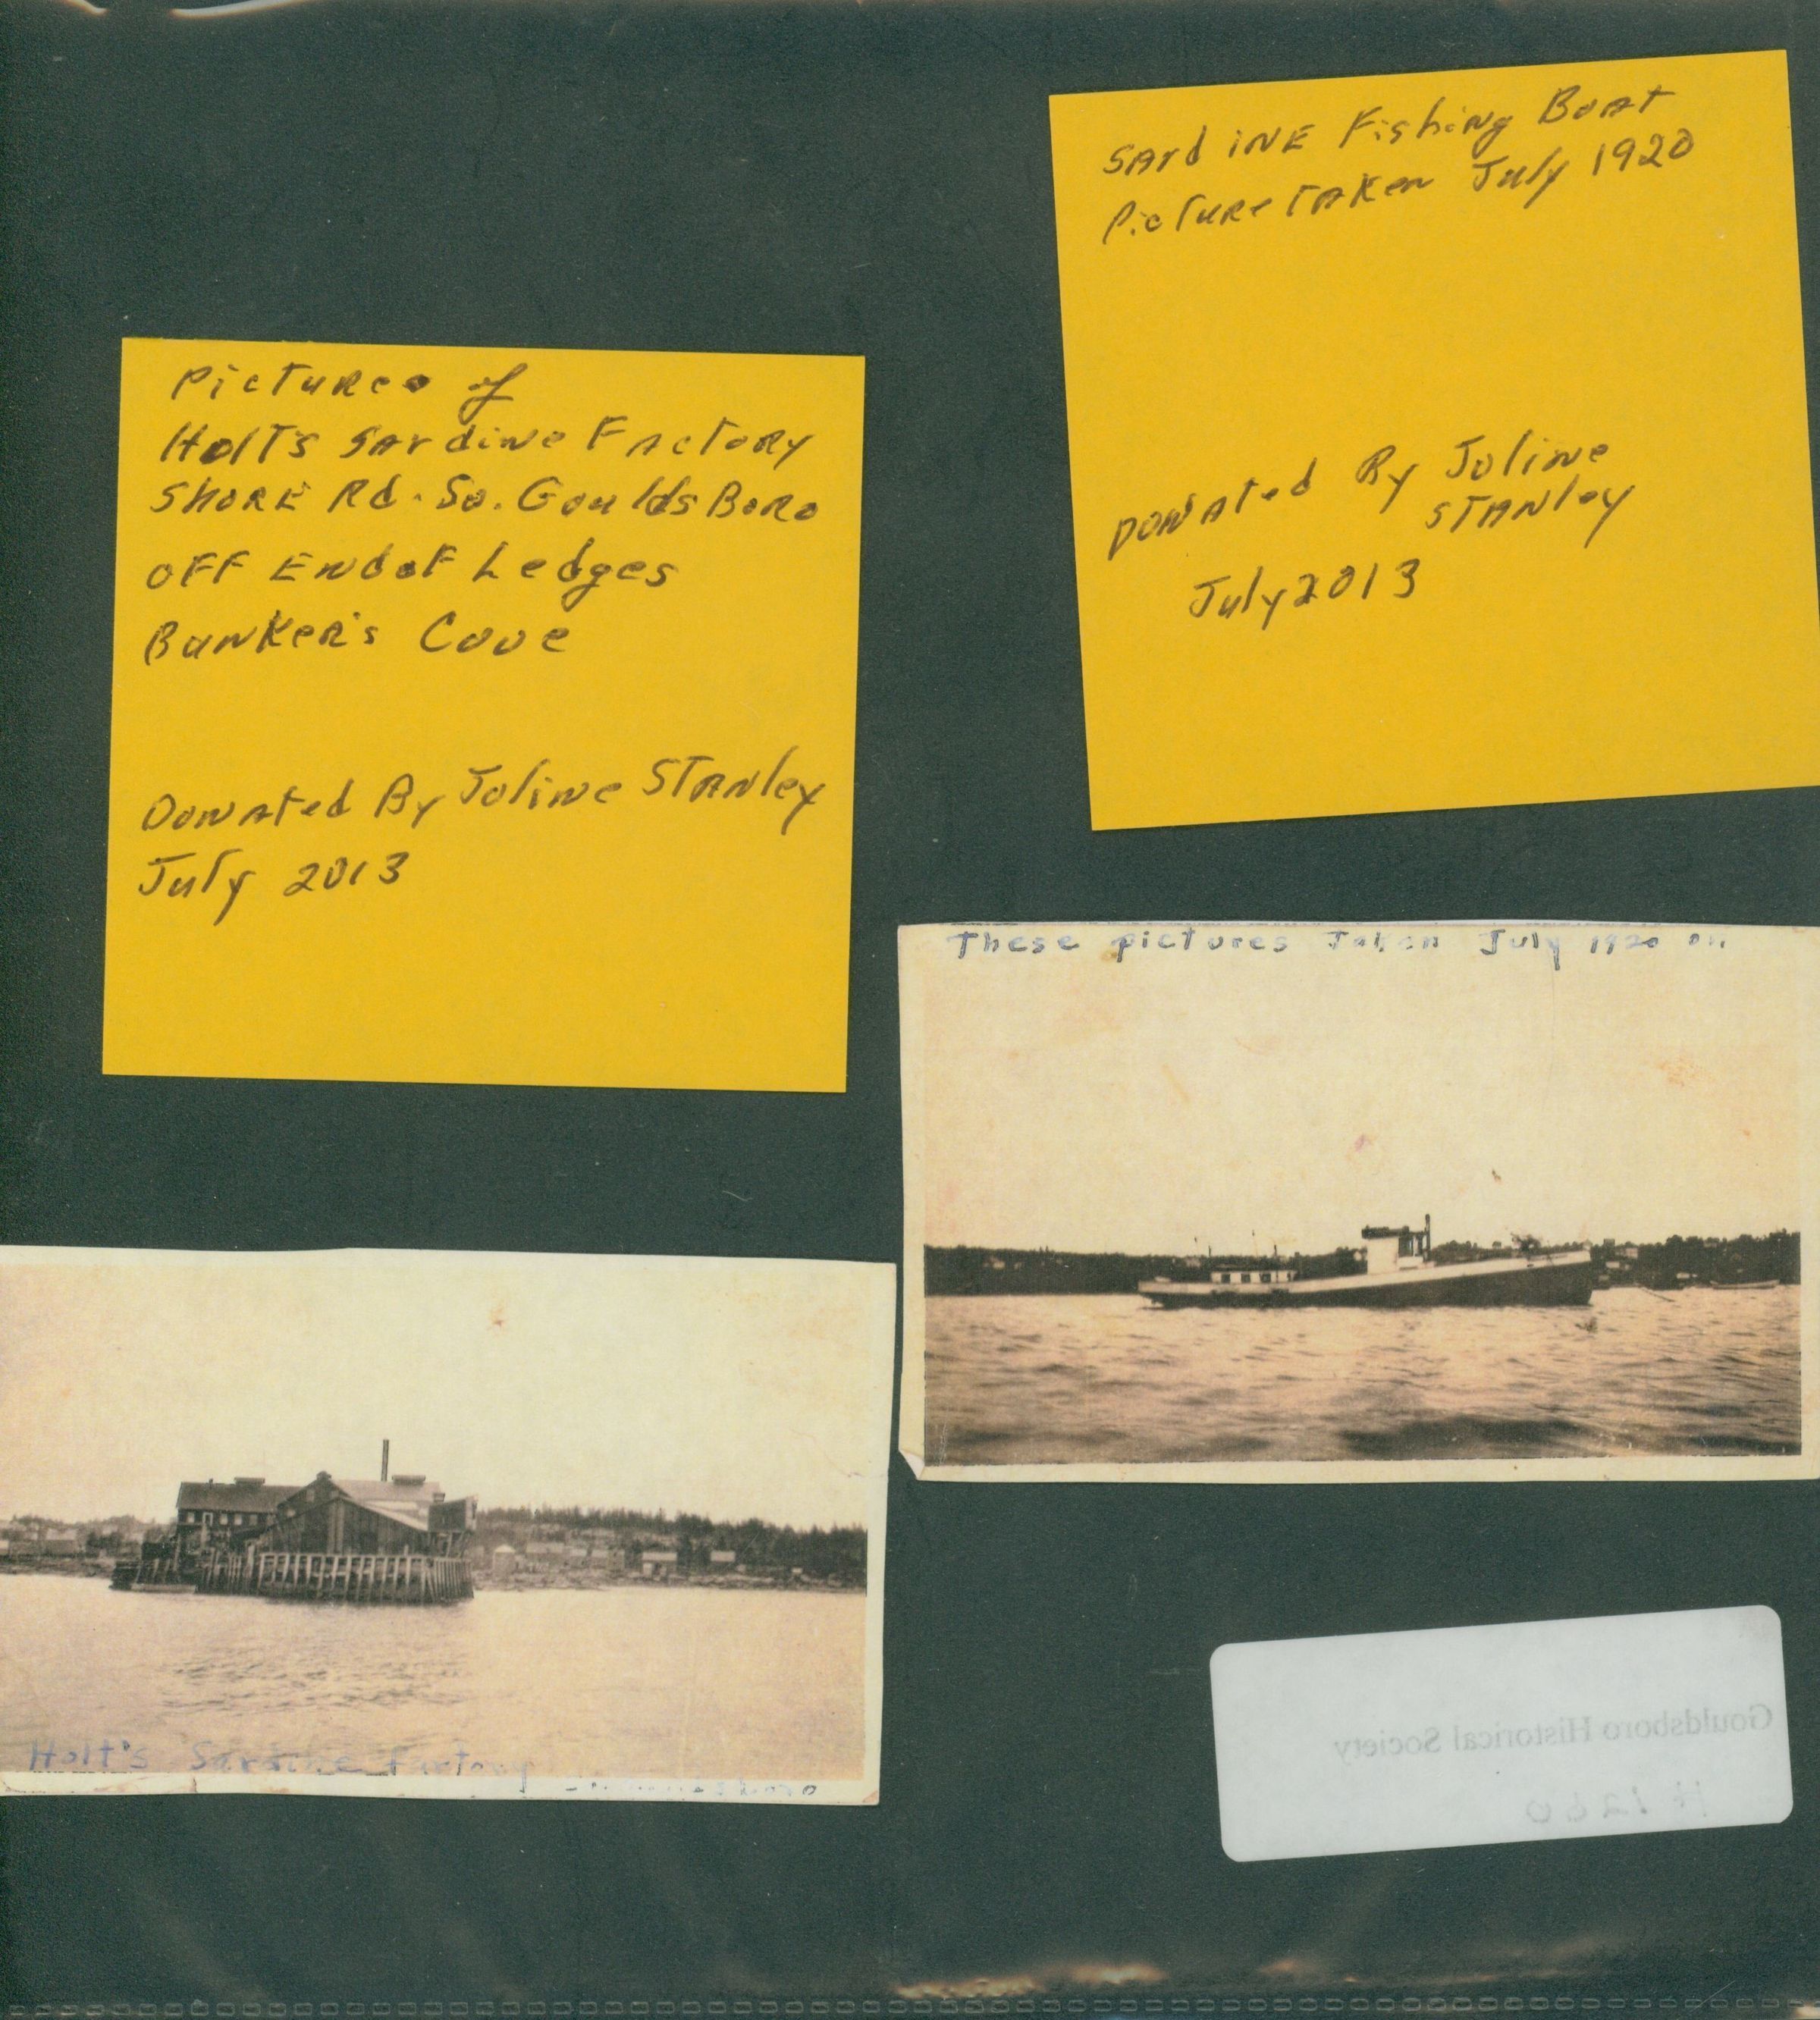 Pictures of
Holt's Sardine Factory
Shore Rd. So. Gouldsboro
off End of Ledges
Bunker's Cove
Donated By Joline Stanley
July 2013
Sardine Fishing Boat
Picture taken July 1920
Donated By Joline
Stanley
July 2013
These pictures Taken July 1920 on
Holt's Sardine Factory
Gouldsboro Historical Society